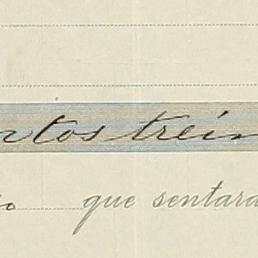 ntos trein
que sentara